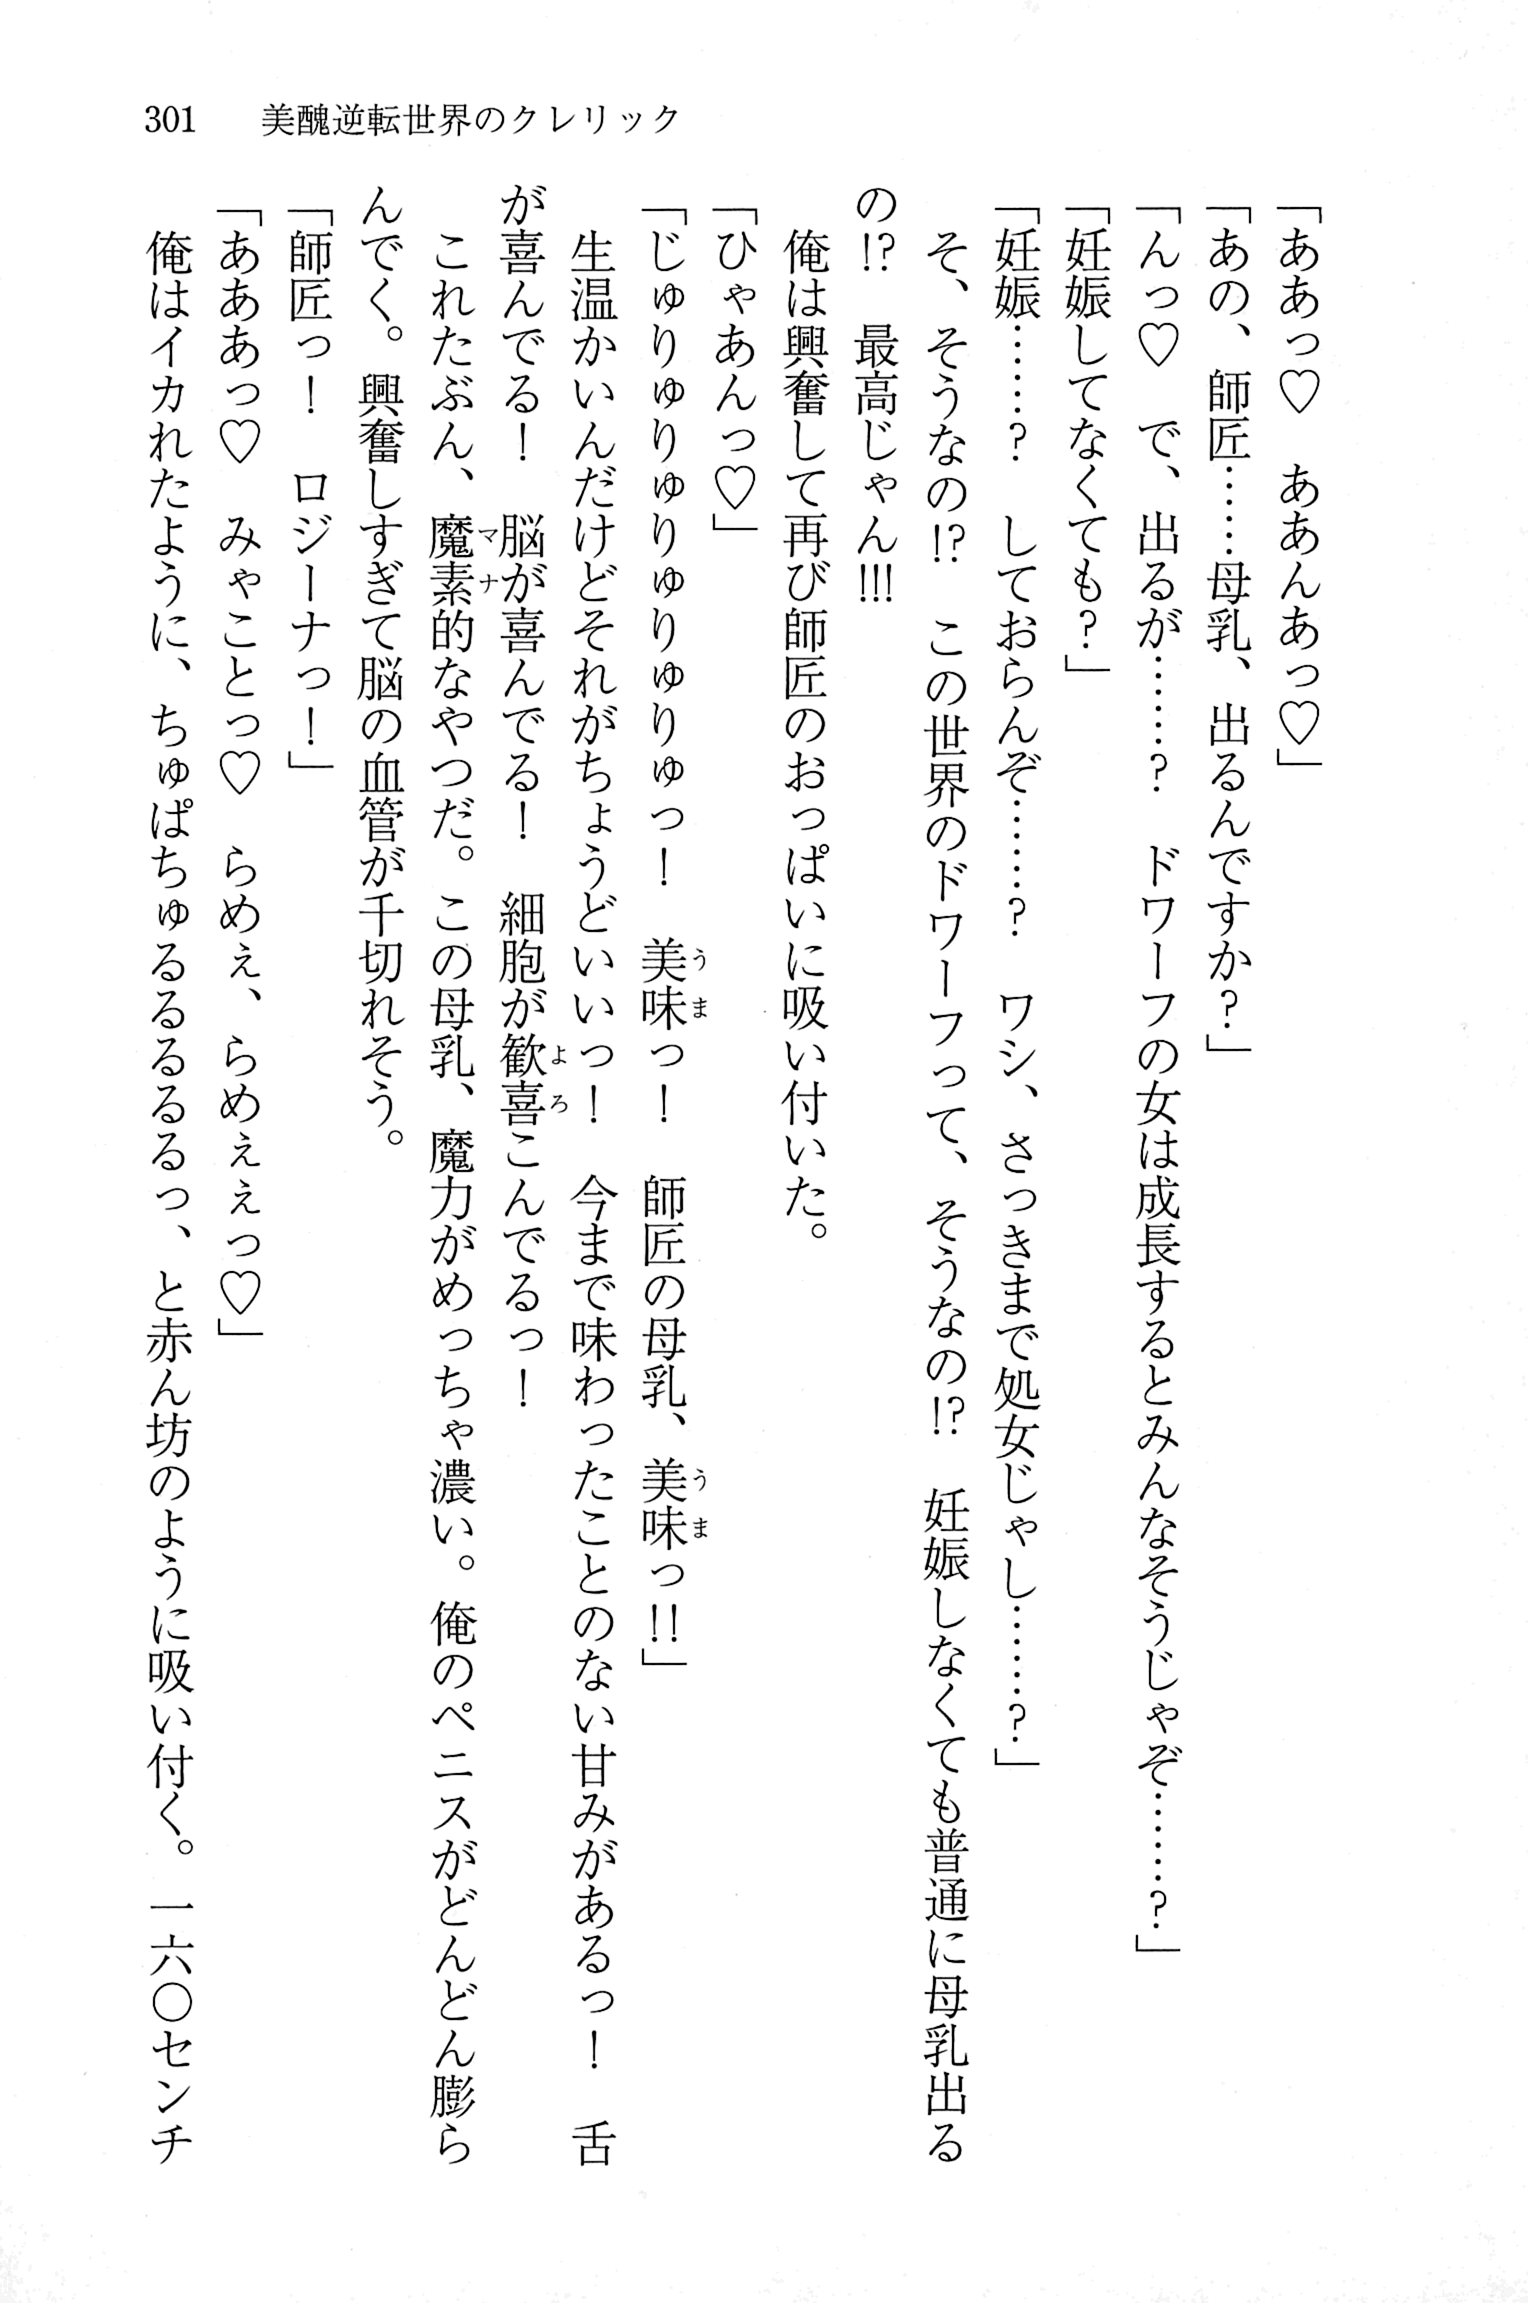 301 美醜逆転世界のクレリック
「ああっ♡ ああんあっ♡」
「あの、師匠……母乳、出るんですか?」
「んっ♡ で、出るが………? ドワーフの女は成長するとみんなそうじゃぞ………?」
「妊娠してなくても?」
「妊娠………? しておらんぞ………? ワシ、さっきまで処女じゃし………?」
そ、そうなの!? この世界のドワーフって、そうなの!? 妊娠しなくても普通に母乳出る
の!? 最高じゃん!!!
俺は興奮して再び師匠のおっぱいに吸い付いた。
「ひゃあんっ♡」
「じゅりゅりゅりゅりゅりゅっ! 美味っ! 師匠の母乳、美味っ!!」
生温かいんだけどそれがちょうどいいっ! 今まで味わったことのない甘みがあるっ! 舌
が喜んでる! 脳が喜んでる! 細胞が歓喜こんでるっ!
これたぶん、魔素的なやつだ。この母乳、魔力がめっちゃ濃い。俺のペニスがどんどん膨ら
んでく。興奮しすぎて脳の血管が千切れそう。
「師匠っ! ロジーナっ!」
「あああっ♡ みゃことっ♡ らめぇ、らめぇぇっ♡」
俺はイカれたように、ちゅぱちゅるるるるるっ、と赤ん坊のように吸い付く。一六〇センチ